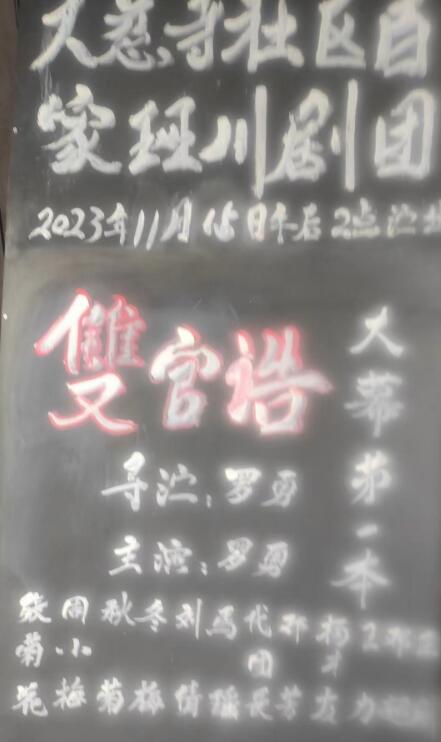 大慈寺社区百
家班川剧团
2023年11月 日午后2点演出
雙官诰
大幕第一本
导演：罗勇
主演：罗勇
张 周 秋 冬 刘 马 代 邓 杨 王 邓
菊 小 团 才
花 梅 菊 梅 倩 瑶 长 芳 友 力